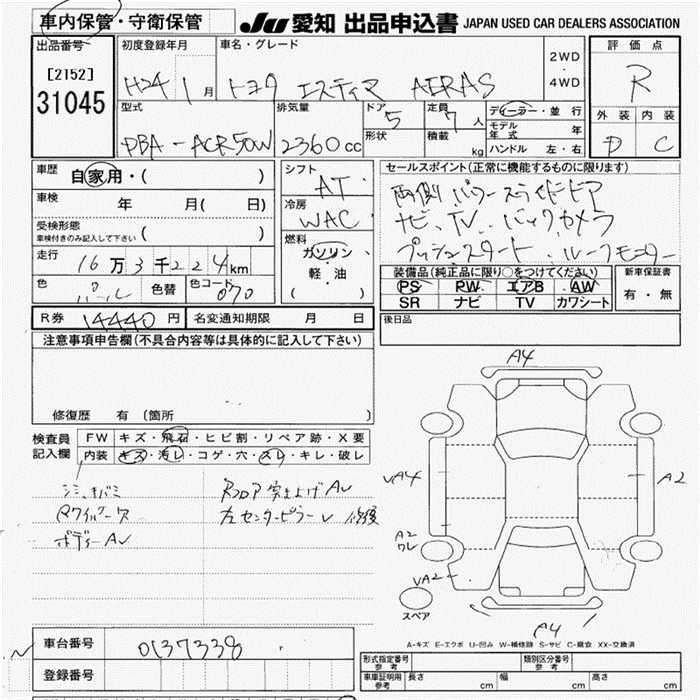 車内保管・守衛保管
JU 愛知 出品申込書 JAPAN USED CAR DEALERS ASSOCIATION
出品番号 初度登録年月 車名・グレード 評価点
[2152]
31045
H24 1月 トヨタ エスティマ AERAS 2WD・4WD R
外装 内装
D C
型式 排気量 ドア 定員 ディーラー・並行
DBA-ACR50W 2360cc 5 7人
形状 積載 kg
モデル年式 年
ハンドル 左・右
車歴 自家用・( )
シフト AT
セールスポイント(正常に機能するものに限ります)
両側パワースライドドア
車検 年 月( 日)
冷房 WAC
ナビ、TV、バックカメラ
受検形態
車検付きのみ記入して下さい( )
燃料 ガソリン・軽・油
( )
プッシュスタート、ルーフモニター
走行 16万3千224km
装備品(純正品に限り○をつけてください) 新車保証書
色 パール 色替 色コード 070
PS PW エアB AW 有・無
SR ナビ TV カワシート
R券 14440円 名変通知期限 月 日
後日品
注意事項申告欄(不具合内容等は具体的に記入して下さい)
修復歴 有 〔箇所 〕
検査員記入欄
FW キズ・飛石・ヒビ割・リペア跡・X要
内装 キズ・汚レ・コゲ・穴・スレ・キレ・破レ
シミ、キバミ
Rフロア突き上げAU
左センターピラーU 修後
ボディーAU
A4
UA4
A2
A2
ワレ
UA2
スペア
A4
A-キズ E-エクボ U-凹み W-補修跡 S-サビ C-腐食 XX-交換済
車台番号 0137338
登録番号
形式指定番号 参考 類別区分番号 参考
車庫証明用 参考 長さ cm 幅 cm 高さ cm